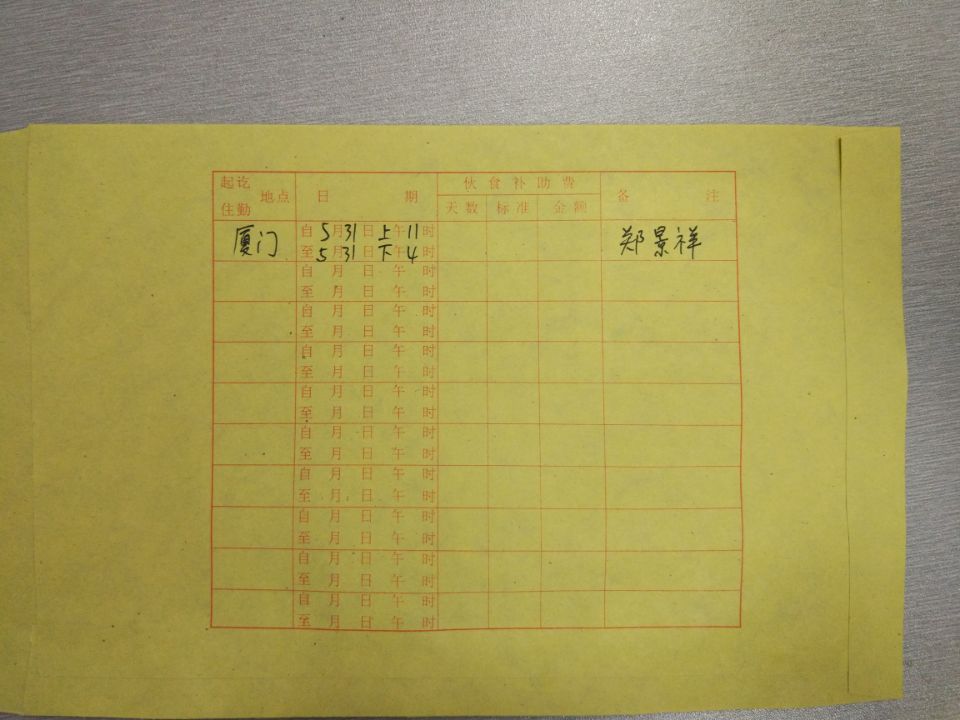 起讫 地点 日 期 伙食补助费 备 注
住勤 天数 标准 金额
厦门 自 5月31日 上午11时 郑景祥
至 5月31日 下午4时
自 月 日 午 时
至 月 日 午 时
自 月 日 午 时
至 月 日 午 时
自 月 日 午 时
至 月 日 午 时
自 月 日 午 时
至 月 日 午 时
自 月 日 午 时
至 月 日 午 时
自 月 日 午 时
至 月 日 午 时
自 月 日 午 时
至 月 日 午 时
自 月 日 午 时
至 月 日 午 时
自 月 日 午 时
至 月 日 午 时